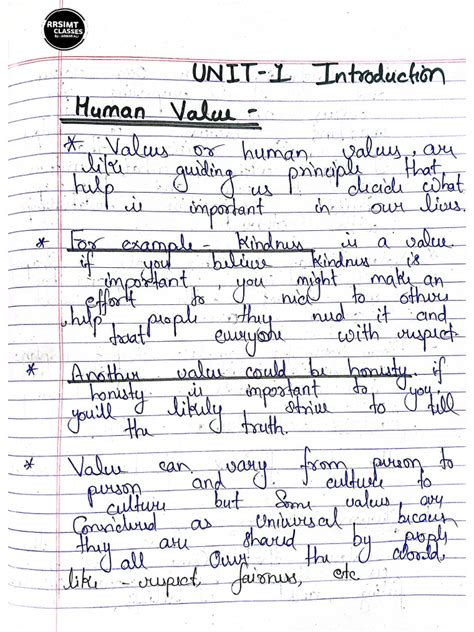 RRSIMT
CLASSES
UNIT-1 Introduction
Human Value -
* Values or human values, are
like guiding principle that
help us decide what
is important in our lives.
* For example - Kindness is a value
if you believe kindness is
important, you might make an
effort to nice to others
help people they need it and
treat everyone with respect
* Another value could be honesty. if
honesty is important to you,
you'll likely strive to tell
the truth.
* Value can vary from person to
person and culture to
culture but Some values are
Considered as Universal because
they are shared by people
all over the world,
like - respect fairness, etc